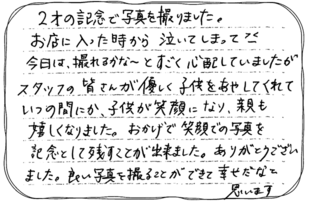 2才の記念で写真を撮りました。
お店に入った時から 泣いてしまって
今日は、撮れるかな〜とすごく心配していましたが
スタッフの皆さんが優しく子供をあやしてくれて
いつの間にか、子供が笑顔になり、親も
嬉しくなりました。おかげで笑顔での写真を
記念として残すことが出来ました。ありがとうござい
ました。良い写真を撮ることができて幸せだなと
思います